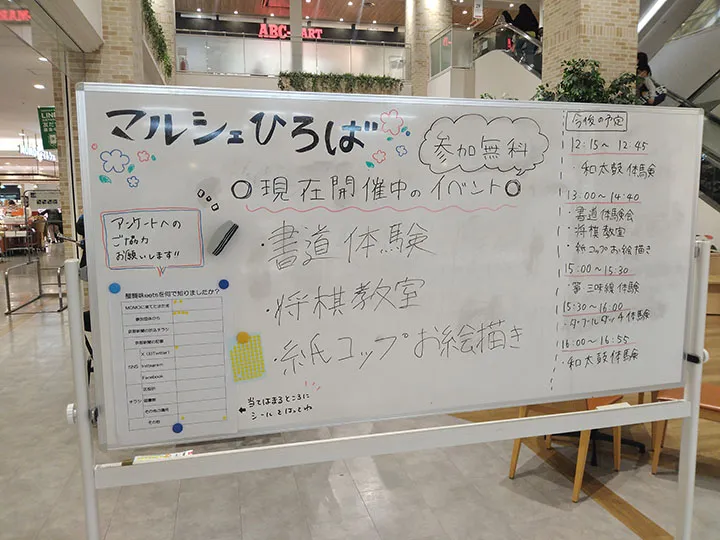 ABC-MART
LINE
マルシェひろば
参加無料
○現在開催中のイベント○
・書道体験
・将棋教室
・紙コップお絵描き
アンケートへの
ご協力
お願いします!!
MOMOに来てたまたま
参加団体から
京都新聞の折込チラシ
京都新聞の記事
X(旧Twitter)
SNS Instagram
Facebook
チラシ 図書館
その他の場所
その他
←当てはまるところに
シールをはってね
今後の予定
12:15～12:45
・和太鼓体験
13:00～14:40
・書道体験会
・将棋教室
・紙コップお絵描き
15:00～15:30
・箏 三味線体験
15:30～16:00
・ダブルダッチ体験
16:00～16:55
・和太鼓体験